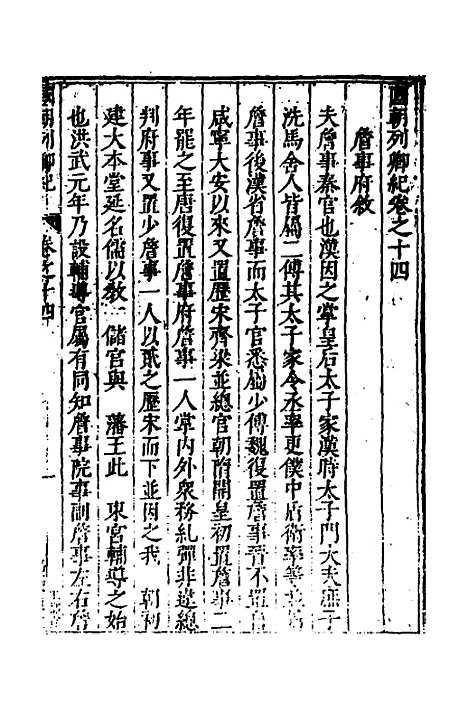 國朝列卿紀卷之十四
詹事府敘
夫詹事秦官也漢因之掌皇后太子家漢時太子門大夫庶子
洗馬舍人皆屬二傅其太子家令丞率更僕中盾衛率等
詹事後漢省詹事而太子官悉屬少傅魏復置詹事晉不置
咸寧大安以來又置歷宋齊梁並總官朝隋開皇初置詹事二
年罷之至唐復置詹事府詹事一人掌内外衆務糺彈非違總
判府事又置少詹事一人以貳之歷宋而下並因之我 朝初
建大本堂延名儒以教 儲宮與 藩王此 東宮輔導之始
也洪武元年乃設輔導官屬有同知詹事院事副詹事左右詹
國朝列卿紀 卷之十四